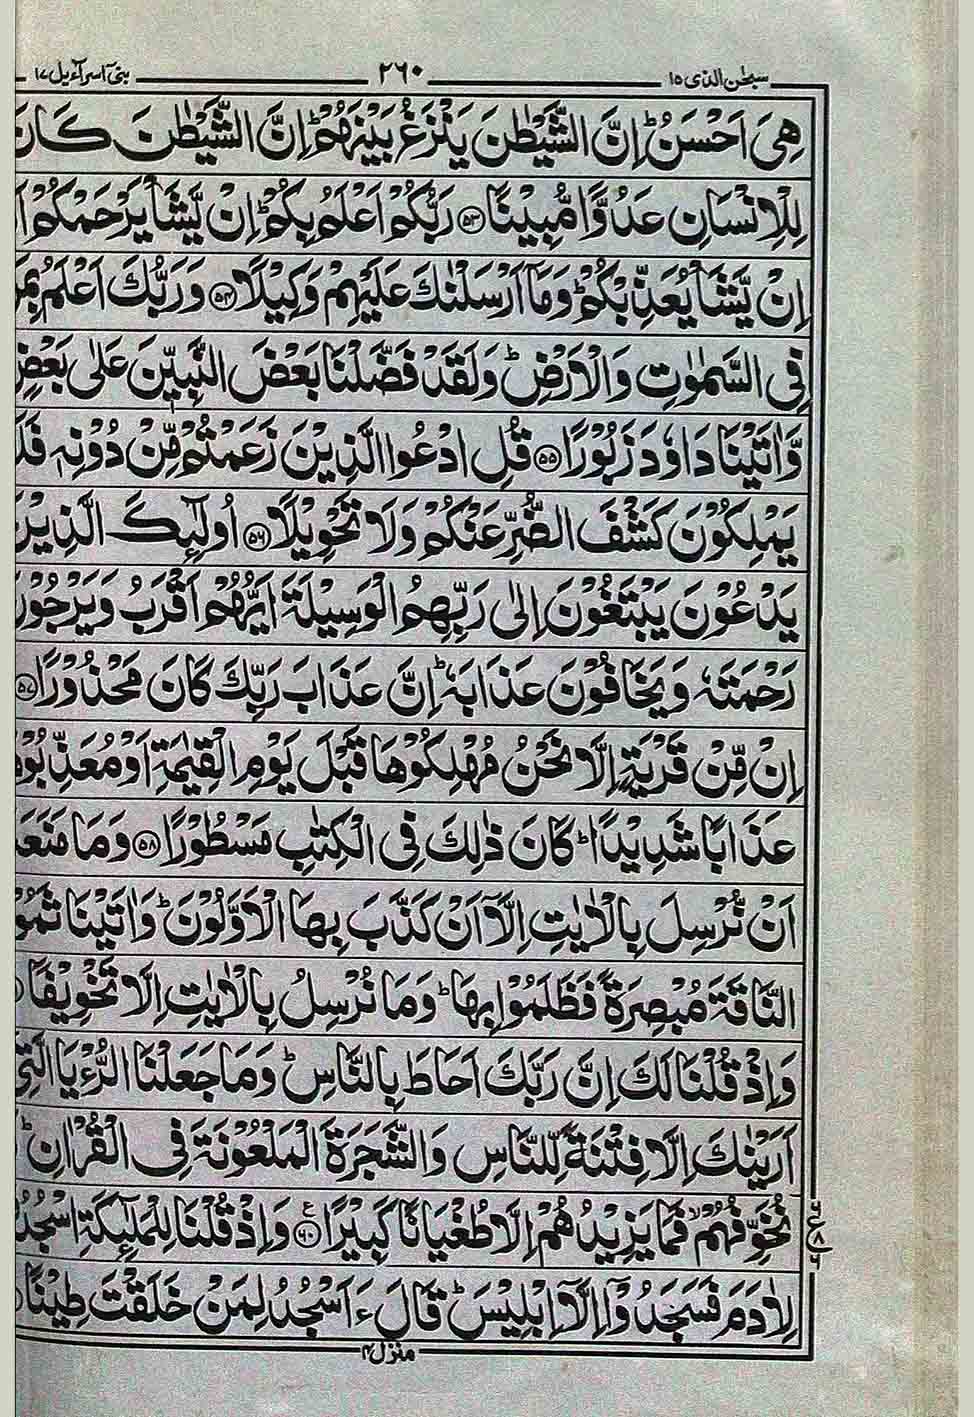 سبحٰن الذی ۱۵
۲۶۰
بنیٓ اسرآءیل ۱۷
هِیَ اَحْسَنُ ؕ اِنَّ الشَّیْطٰنَ یَنْزَغُ بَیْنَهُمْ ؕ اِنَّ الشَّیْطٰنَ كَانَ
لِلْاِنْسَانِ عَدُوًّا مُّبِیْنًا ۵۳ رَبُّكُمْ اَعْلَمُ بِكُمْ ؕ اِنْ یَّشَاْ یَرْحَمْكُمْ
اِنْ یَّشَاْ یُعَذِّبْكُمْ ؕ وَمَاۤ اَرْسَلْنٰكَ عَلَیْهِمْ وَكِیْلًا ۵۴ وَرَبُّكَ اَعْلَمُ بِمَنْ
فِی السَّمٰوٰتِ وَالْاَرْضِ ؕ وَلَقَدْ فَضَّلْنَا بَعْضَ النَّبِیّٖنَ عَلٰی بَعْضٍ
وَّاٰتَیْنَا دَاوٗدَ زَبُوْرًا ۵۵ قُلِ ادْعُوا الَّذِیْنَ زَعَمْتُمْ مِّنْ دُوْنِهٖ فَلَا
یَمْلِكُوْنَ كَشْفَ الضُّرِّ عَنْكُمْ وَلَا تَحْوِیْلًا ۵۶ اُولٰٓئِكَ الَّذِیْنَ
یَدْعُوْنَ یَبْتَغُوْنَ اِلٰی رَبِّهِمُ الْوَسِیْلَةَ اَیُّهُمْ اَقْرَبُ وَیَرْجُوْنَ
رَحْمَتَهٗ وَیَخَافُوْنَ عَذَابَهٗ ؕ اِنَّ عَذَابَ رَبِّكَ كَانَ مَحْذُوْرًا ۵۷
اِنْ مِّنْ قَرْیَةٍ اِلَّا نَحْنُ مُهْلِكُوْهَا قَبْلَ یَوْمِ الْقِیٰمَةِ اَوْ مُعَذِّبُوْهَا
عَذَابًا شَدِیْدًا ؕ كَانَ ذٰلِكَ فِی الْكِتٰبِ مَسْطُوْرًا ۵۸ وَمَا مَنَعَنَاۤ
اَنْ نُّرْسِلَ بِالْاٰیٰتِ اِلَّاۤ اَنْ كَذَّبَ بِهَا الْاَوَّلُوْنَ ؕ وَاٰتَیْنَا ثَمُوْدَ
النَّاقَةَ مُبْصِرَةً فَظَلَمُوْا بِهَا ؕ وَمَا نُرْسِلُ بِالْاٰیٰتِ اِلَّا تَخْوِیْفًا
وَاِذْ قُلْنَا لَكَ اِنَّ رَبَّكَ اَحَاطَ بِالنَّاسِ ؕ وَمَا جَعَلْنَا الرُّءْیَا الَّتِیْۤ
اَرَیْنٰكَ اِلَّا فِتْنَةً لِّلنَّاسِ وَالشَّجَرَةَ الْمَلْعُوْنَةَ فِی الْقُرْاٰنِ ؕ
نُخَوِّفُهُمْ ۙ فَمَا یَزِیْدُهُمْ اِلَّا طُغْیَانًا كَبِیْرًا ۶۰ ع وَاِذْ قُلْنَا لِلْمَلٰٓئِكَةِ اسْجُدُوْا
لِاٰدَمَ فَسَجَدُوْۤا اِلَّاۤ اِبْلِیْسَ ؕ قَالَ ءَاَسْجُدُ لِمَنْ خَلَقْتَ طِیْنًا
منزل ۴